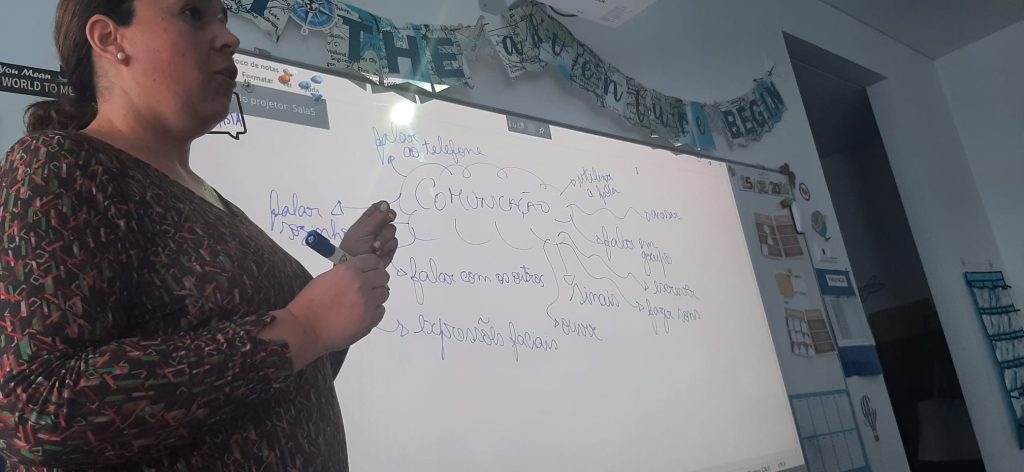 THE adventure BEGIN
You Mean
WORLD TO ME
oco de notas
Formatar
Ver
o projetor: Sala5
falar
ao telefone
COMUNICAÇÃO
utilizar
a fala
avisar
falar
sozinho
falar em
grupo
falar com os outros
escrever
sinais
fazer sons
ouvir
Expressões faciais